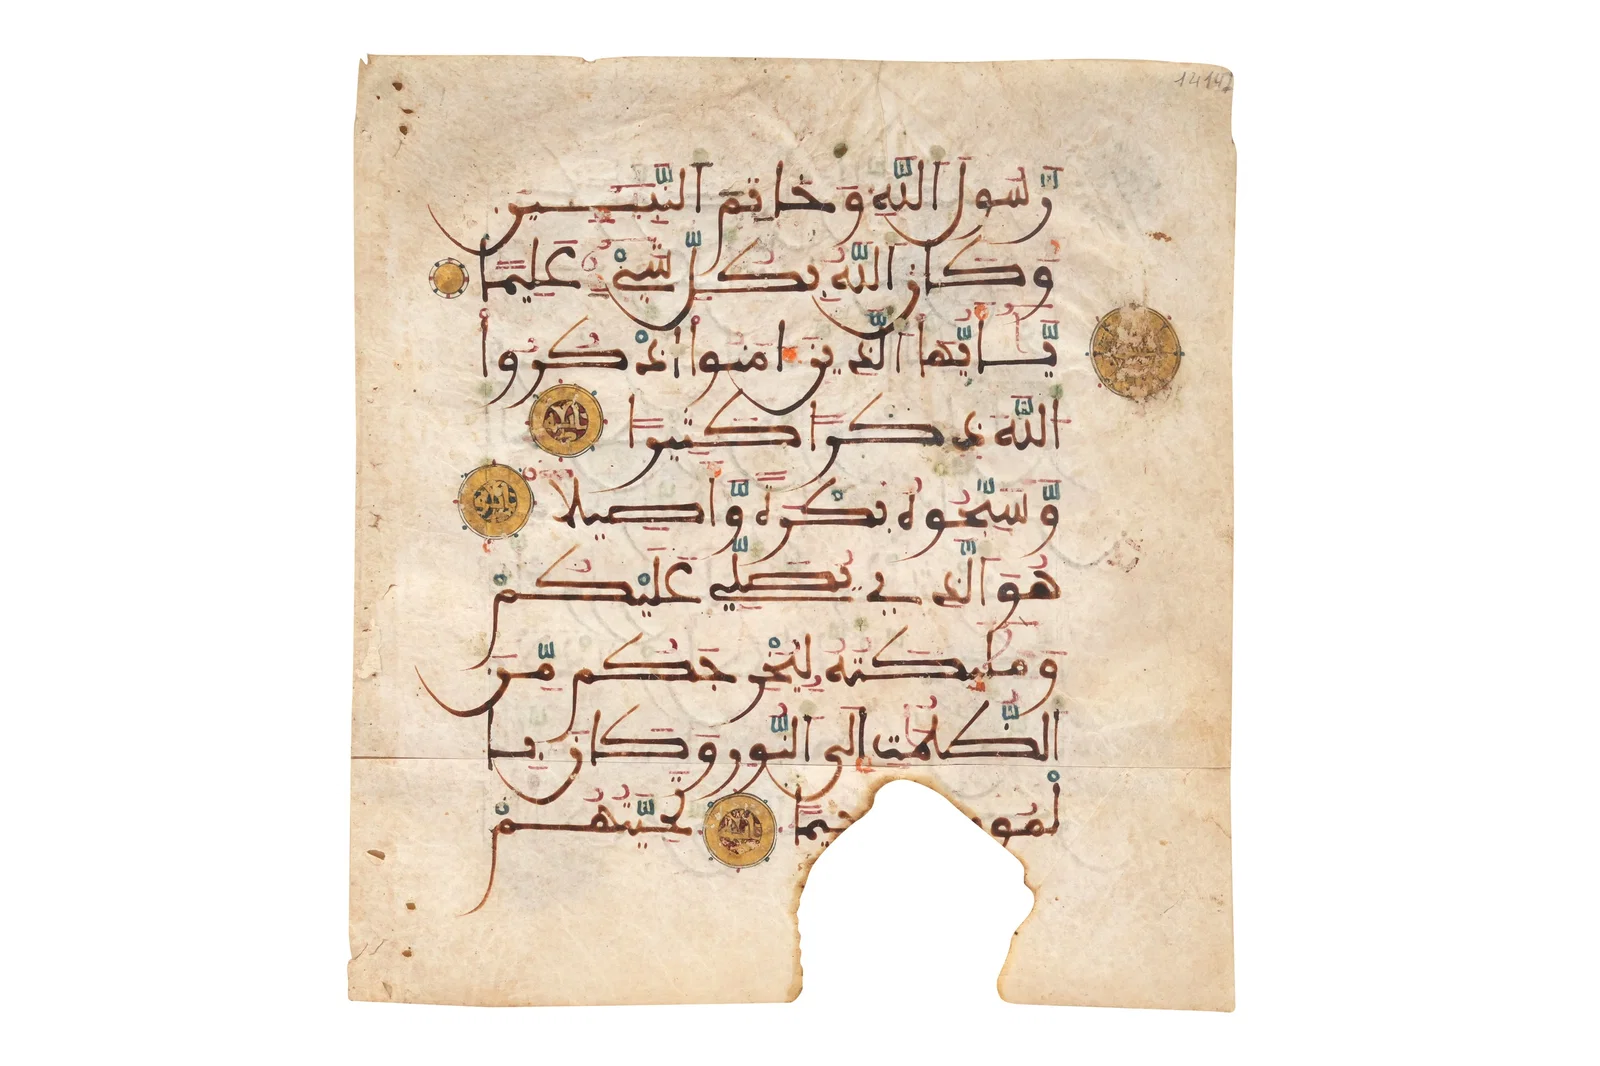 رَّسُولَ اللَّهِ وَخَاتِمَ النَّبِيِّينَ
وَكَانَ اللَّهُ بِكُلِّ شَيْءٍ عَلِيمًا
يَٰأَيُّهَا الَّذِينَ ءَامَنُوا اذْكُرُوا
اللَّهَ ذِكْرًا كَثِيرًا
وَّسَبِّحُوهُ بُكْرَةً وَّأَصِيلًا
هُوَ الَّذِي يُصَلِّي عَلَيْكُمْ
وَمَلَٰئِكَتُهُ لِيُخْرِجَكُم مِّنَ
الظُّلُمَٰتِ إِلَى النُّورِ وَكَانَ بِا
لْمُو حِيمًا تَحِيَّتُهُمْ